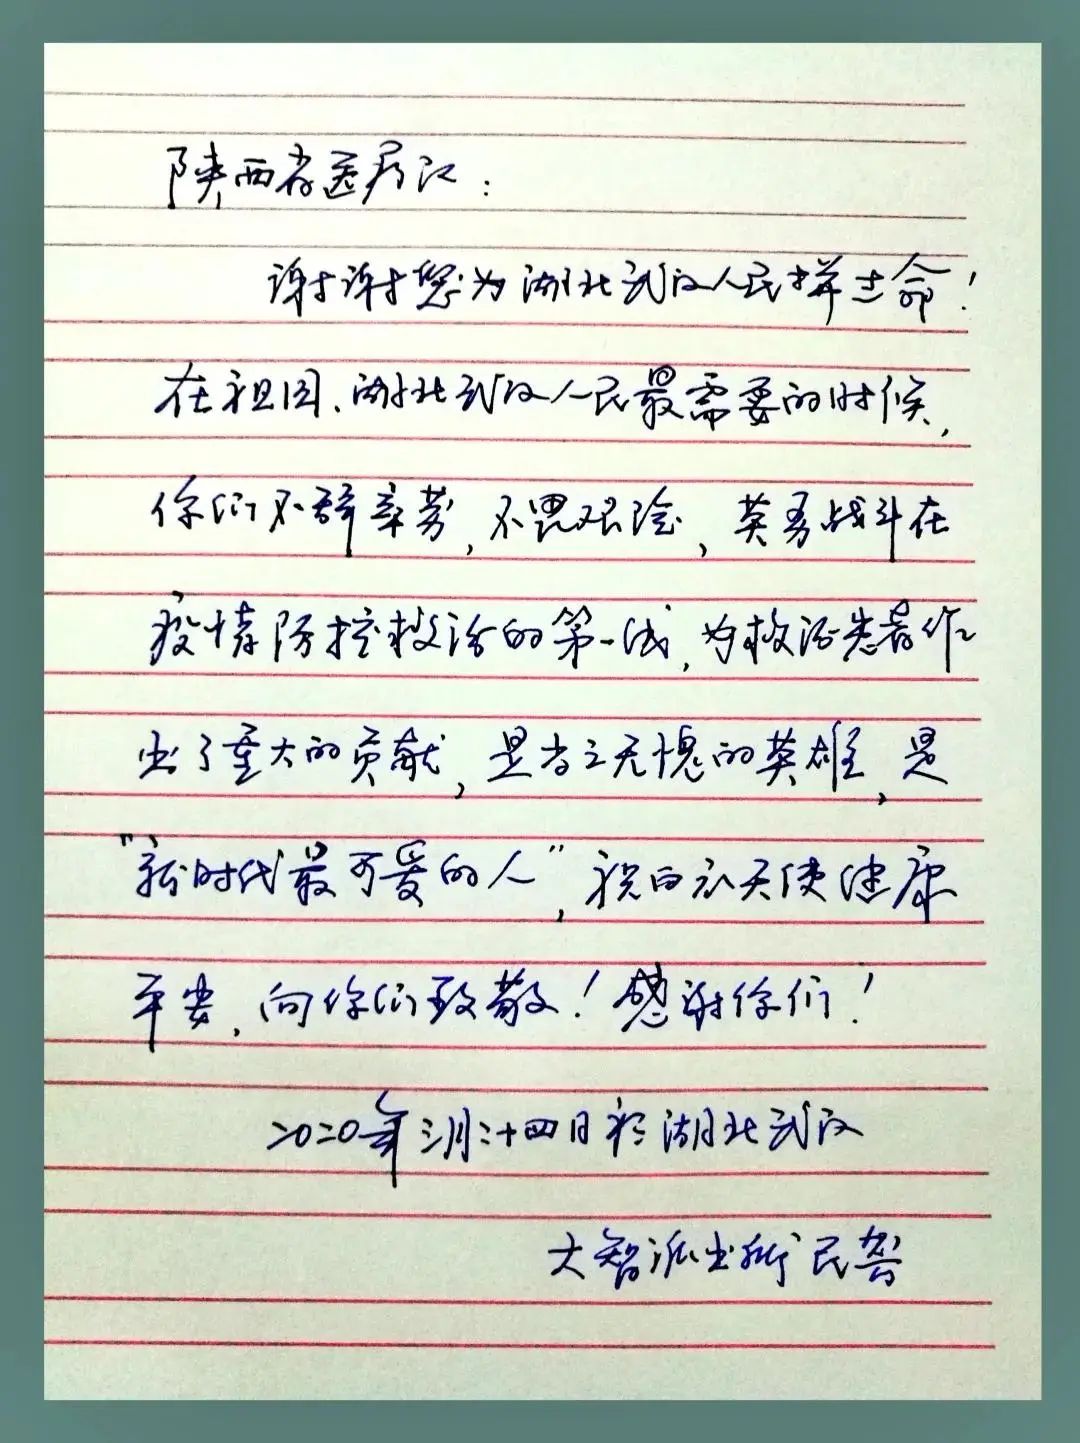 陕西省医疗队：
谢谢您为湖北武汉人民拼过命！
在祖国、湖北武汉人民最需要的时候，
你们不辞辛劳，不畏艰险，英勇战斗在
疫情防控救治的第一线，为救治患者作
出了重大的贡献，是当之无愧的英雄，是
“新时代最可爱的人”，祝白衣天使健康
平安，向你们致敬！感谢你们！
二0二0年三月二十四日于湖北武汉
大智派出所民警